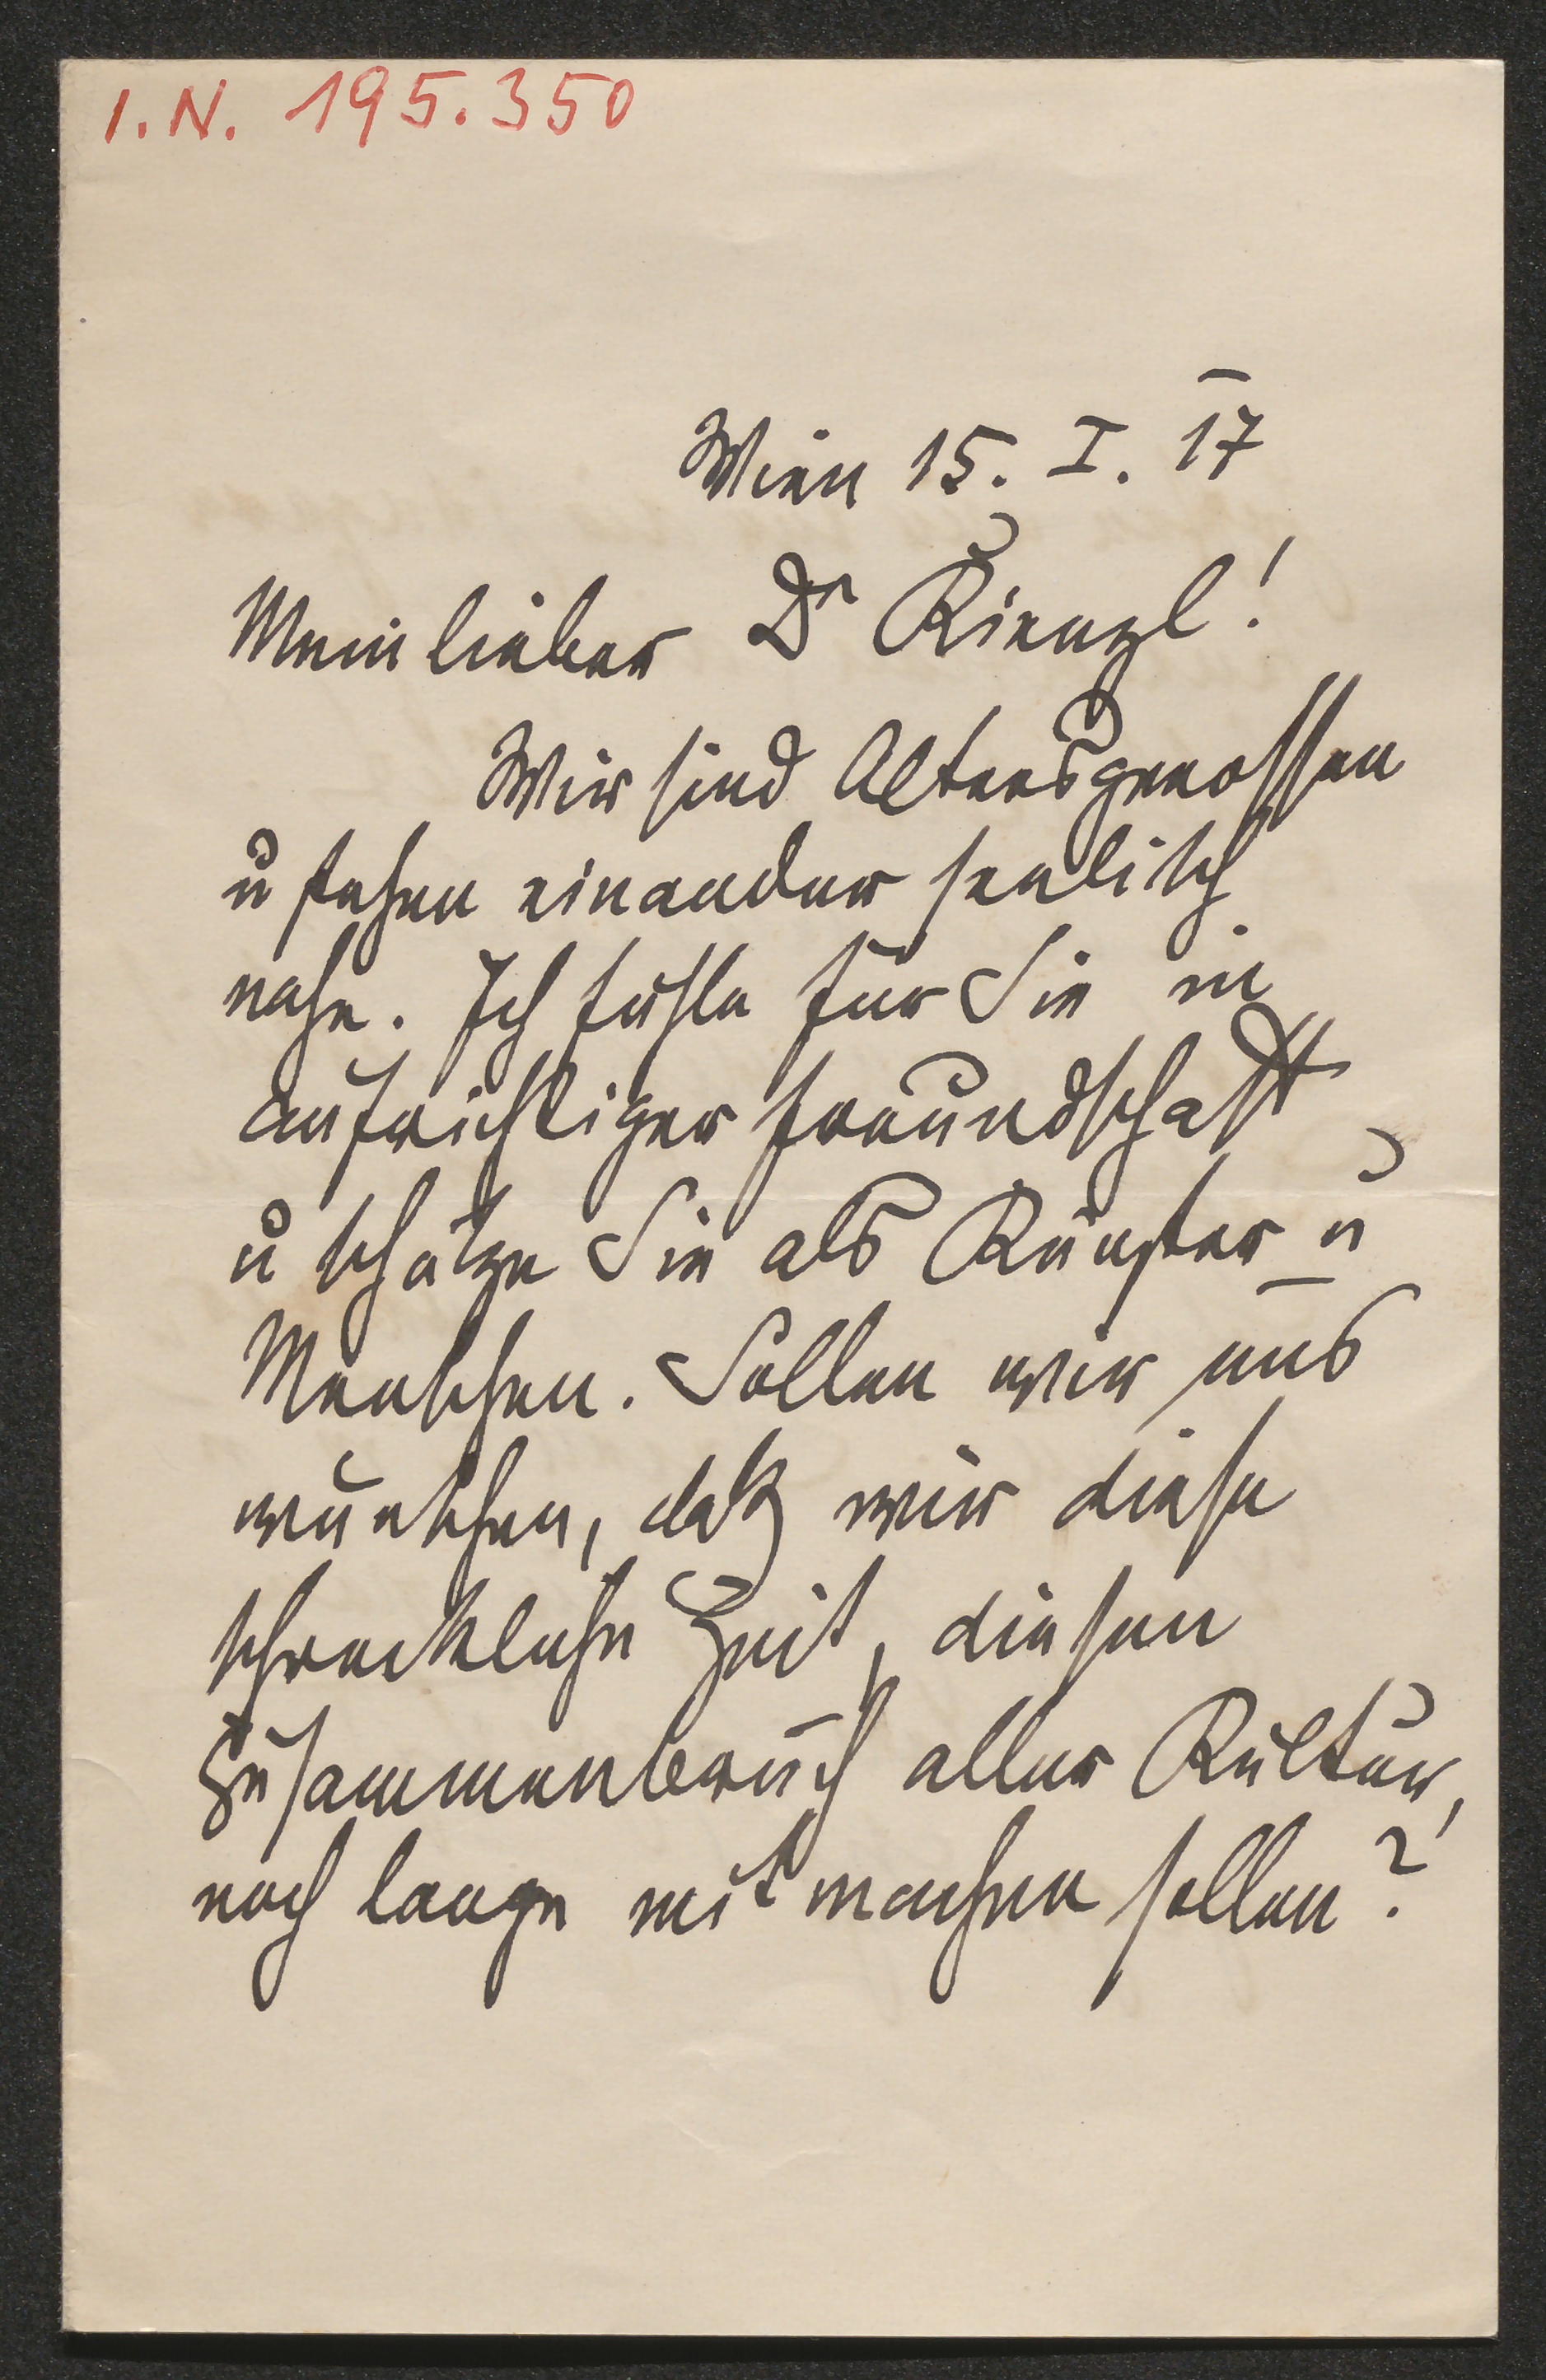 I.N. 195.350
Wien 15. I. 17
Mein lieber Dr Kienzl!
Wir sind Altersgenossen
u stehen einander seelisch
nahe. Ich fühle für Sie in
aufrichtiger Freundschaft
u schätze Sie als Künstler u
Menschen. Sollen wir uns
wünschen, daß wir diese
schreckliche Zeit, diesen
Zusammenbruch aller Kultur,
noch lange mit machen sollen?